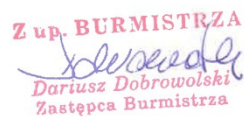 Z up. BURMISTRZA
Dariusz Dobrowolski
Zastępca Burmistrza